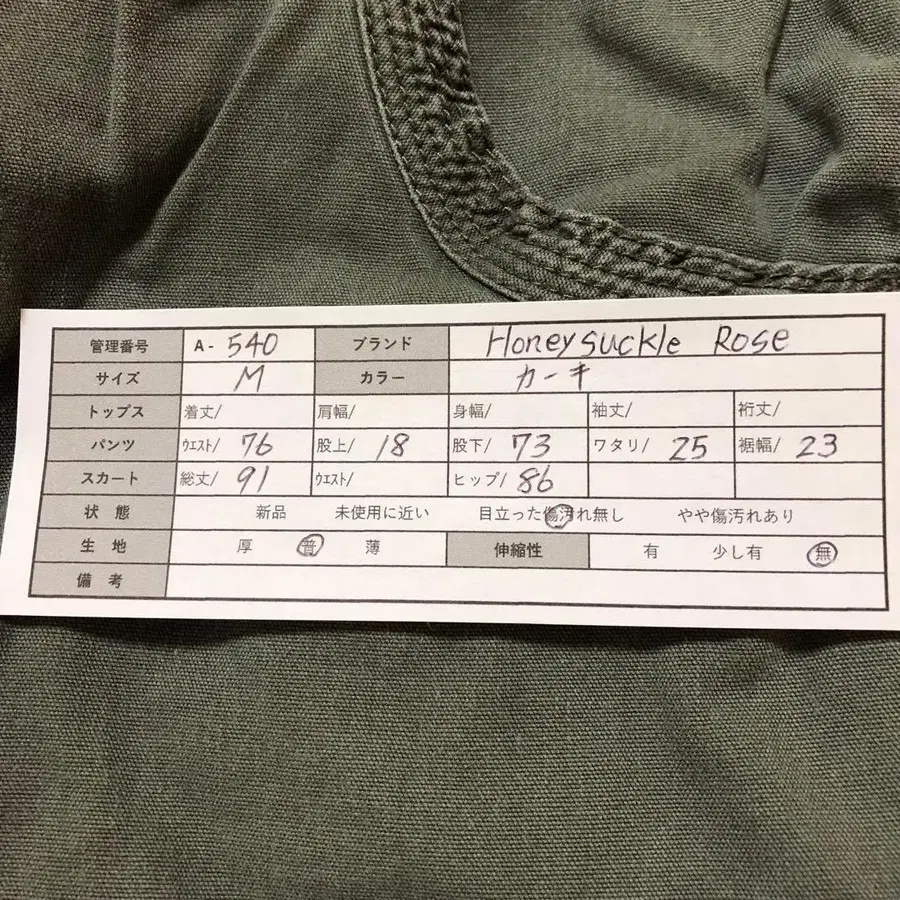 管理番号 A- 540 ブランド Honeysuckle Rose
サイズ M カラー カーキ
トップス 着丈/ 肩幅/ 身幅/ 袖丈/ 裄丈/
パンツ ｳｴｽﾄ/ 76 股上/ 18 股下/ 73 ワタリ/ 25 裾幅/ 23
スカート 総丈/ 91 ｳｴｽﾄ/ ヒップ/ 86
状 態 新品 未使用に近い 目立った傷汚れ無し やや傷汚れあり
生 地 厚 普 薄 伸縮性 有 少し有 無
備 考